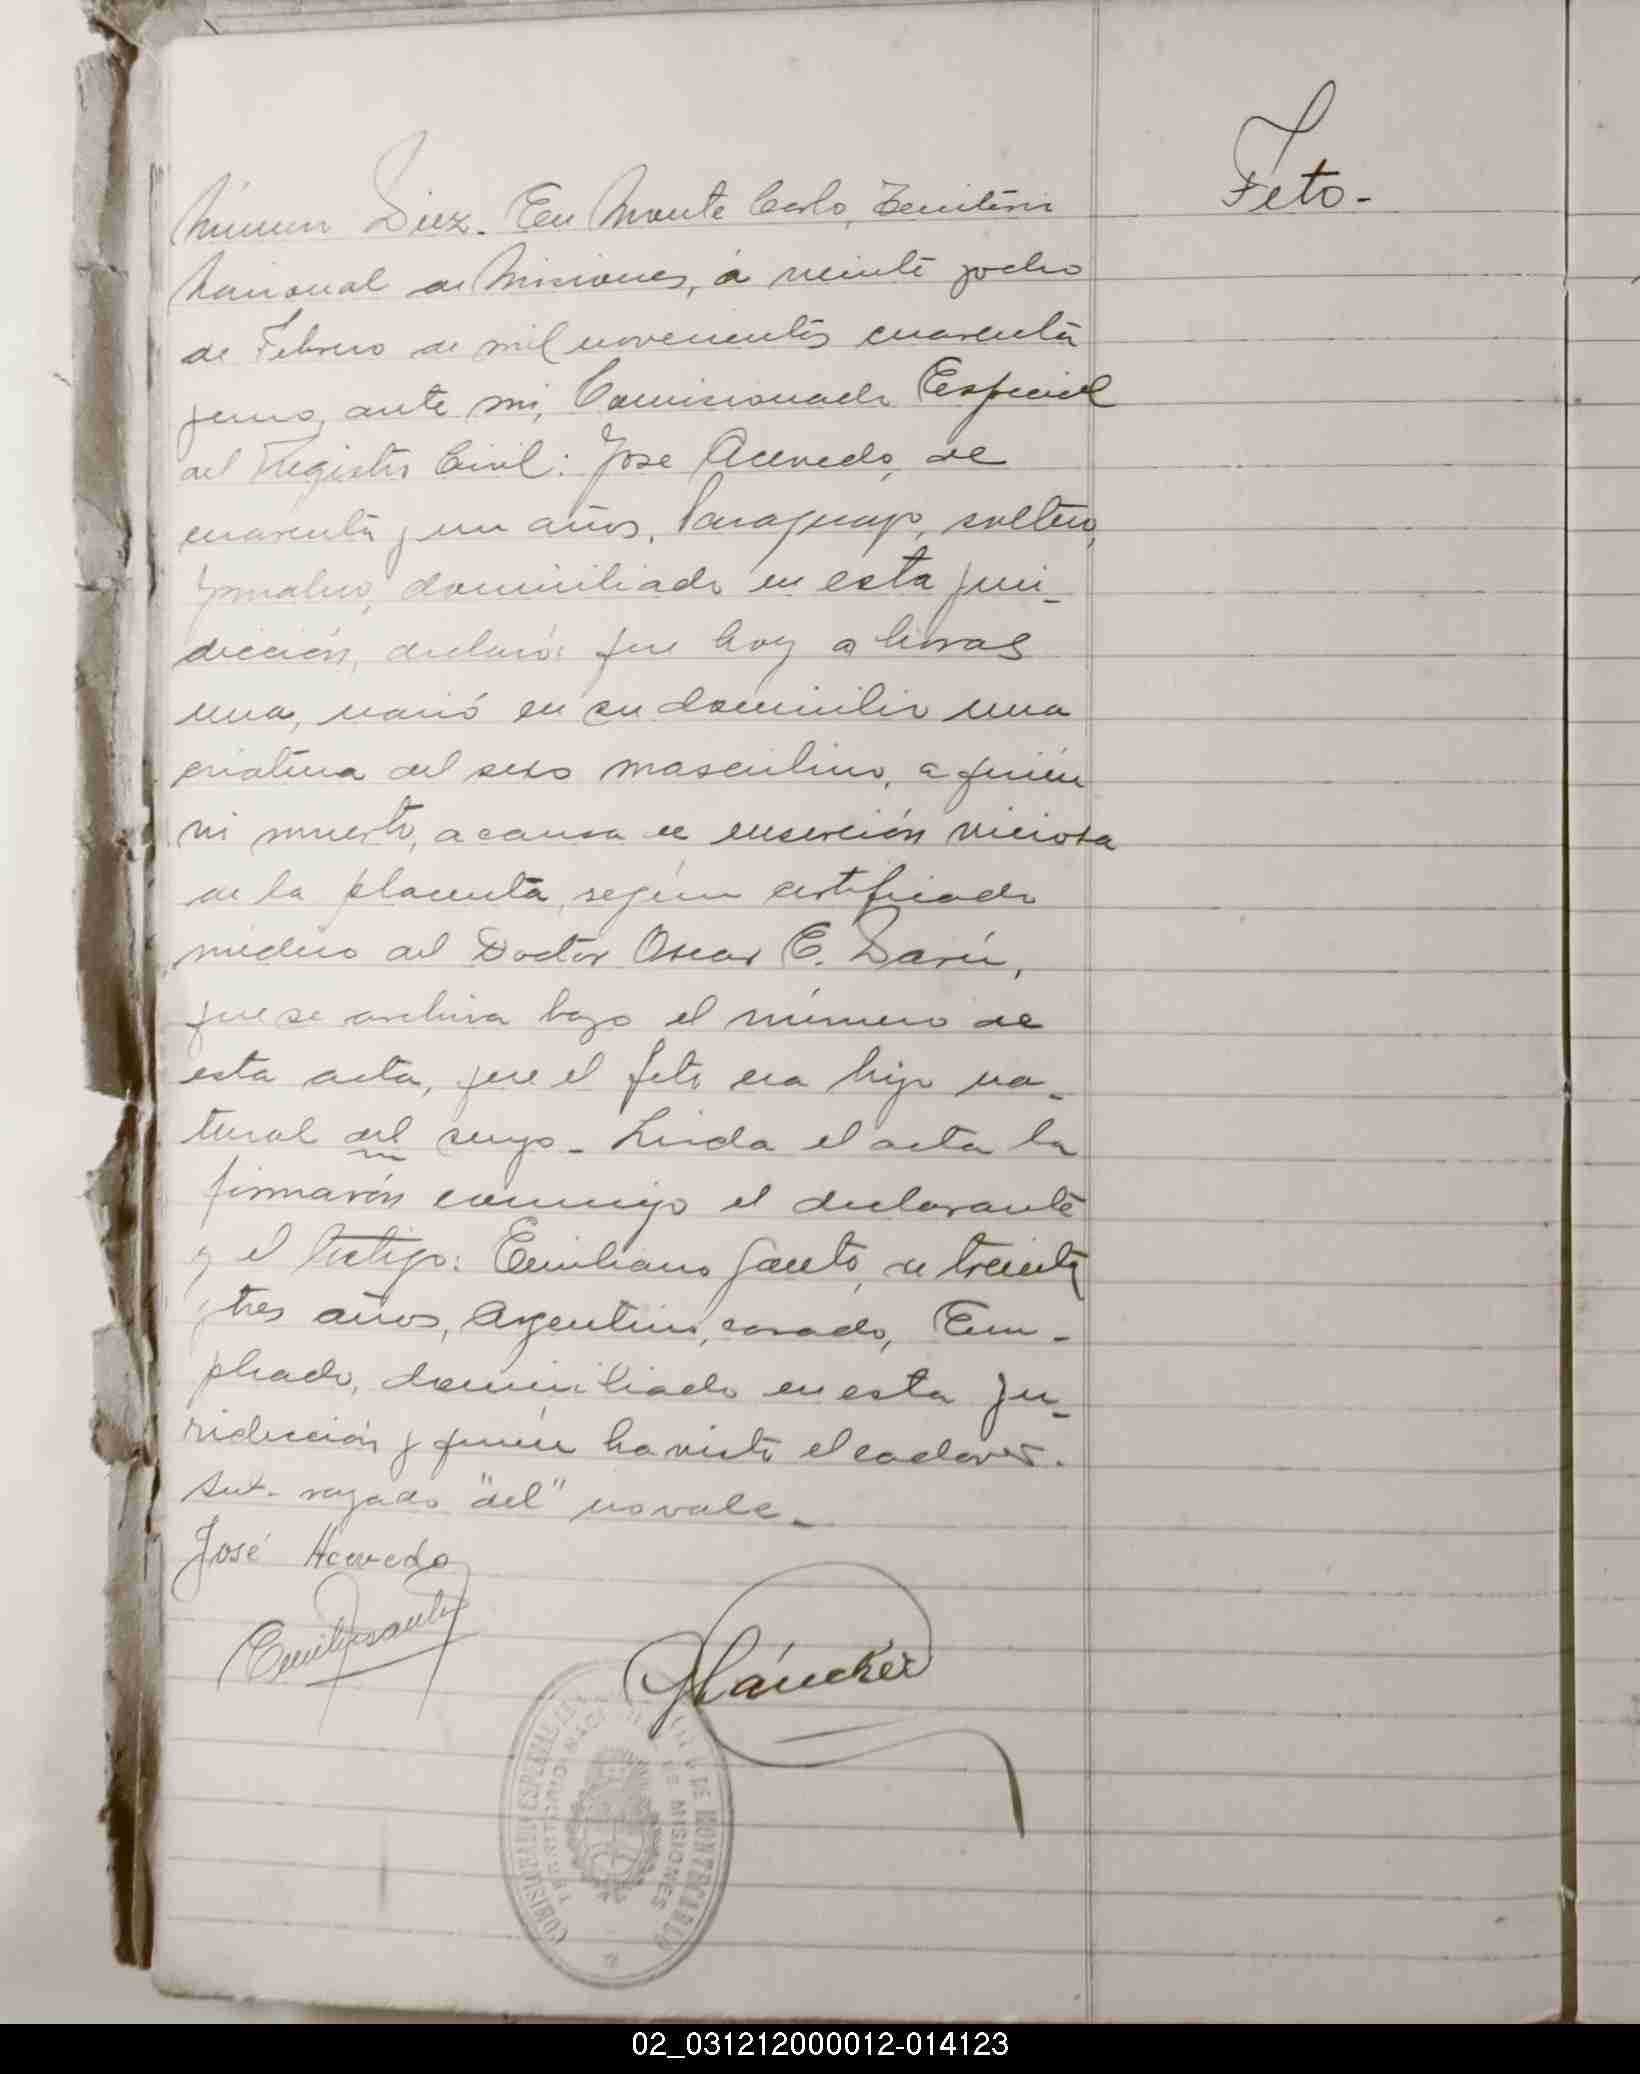 Feto-
Número Diez. En Monte Carlo, Territorio
Nacional de Misiones, á veinte y ocho
de Febrero de mil novecientos cuarenta
y uno, ante mi, Comisionado Especial
del Registro Civil: Jose Acevedo, de
cuarenta y un años, Paraguayo, soltero,
jornalero, domiciliado en esta juri-
dicción, declaró: que hoy a horas
una, nació en su domicilio una
criatura del sexo masculino, a quién
vi muerto, a causa de enserción viciosa
de la placenta, según certificado
médico del Doctor Oscar E. Darú,
que se archiva bajo el número de
esta acta, que el feto era hijo na-
tural del suyo- Leida el acta la
firmarón conmigo el declarante
y el testigo: Emiliano Gauto, de treinta
y tres años, Argentino, casado, Em-
pleado, domiciliado en esta ju-
ridicción y quién ha visto el cadaver.
rayado "del" no vale-
José Acevedo
COMISIONADO ESPECIAL DE MONTECARLO
TERRITORIO NACIONAL DE MISIONES
02_031212000012-014123